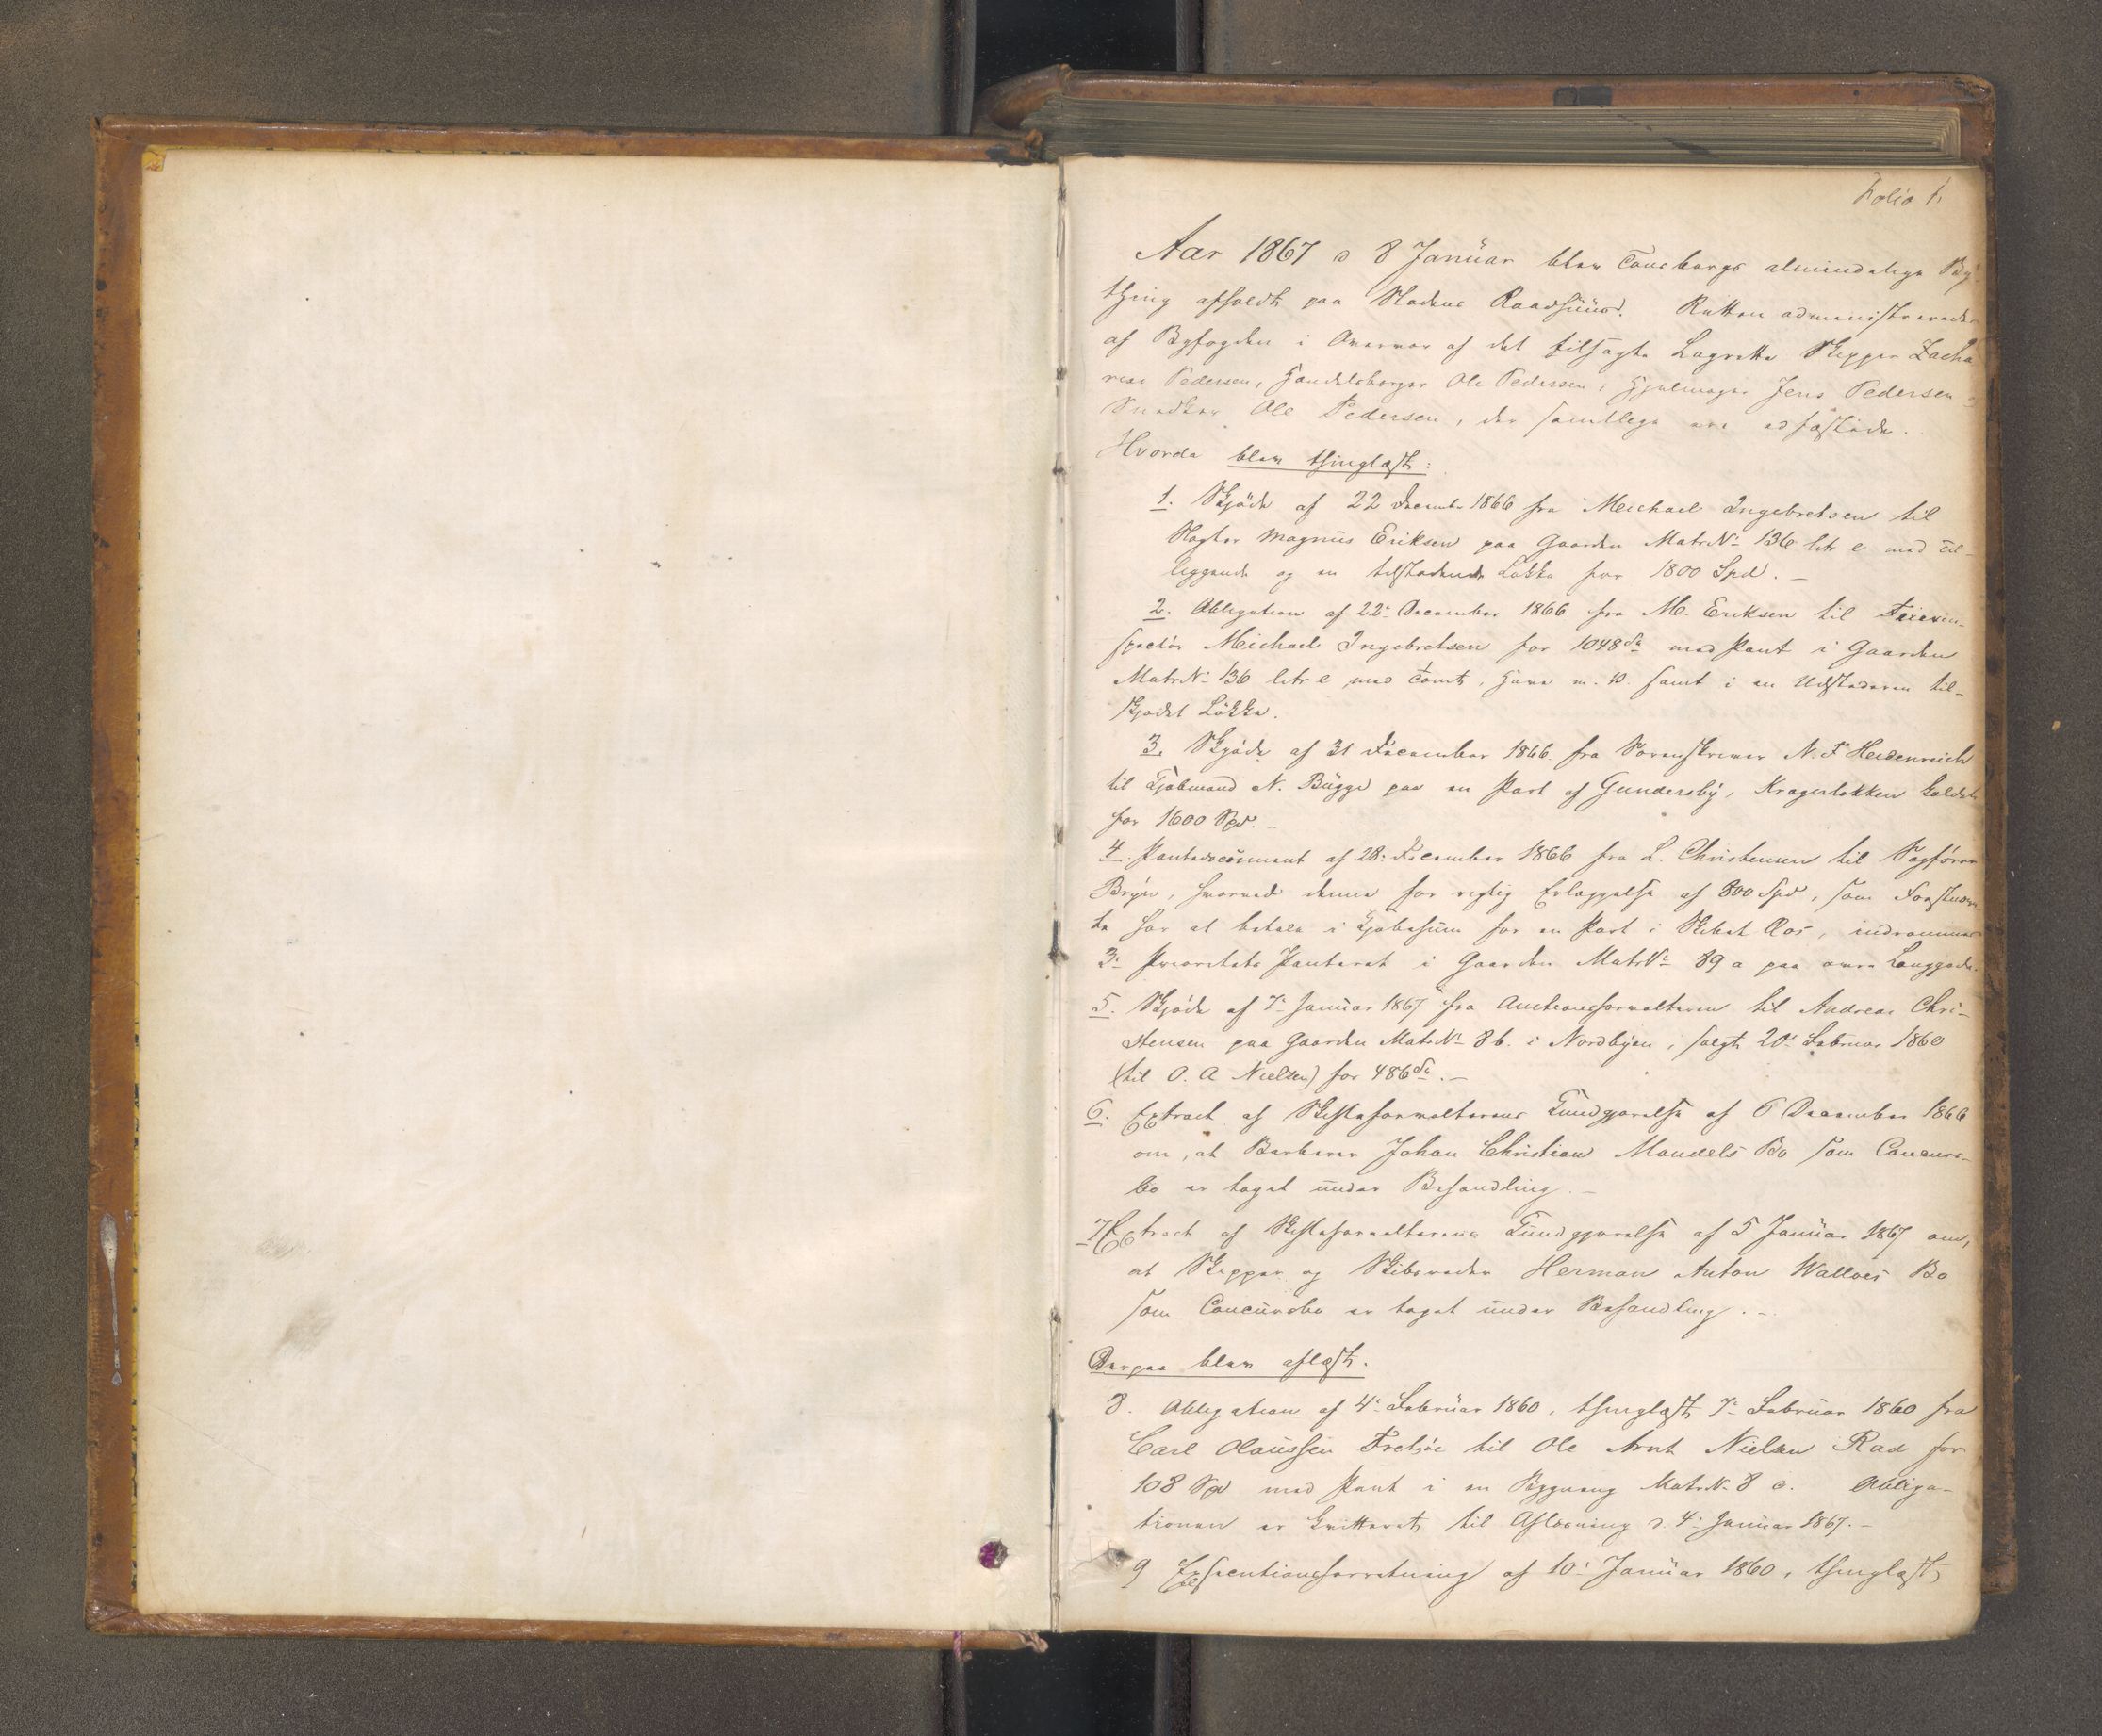 Folio 1.
Aar 1867 d 8 Januar blev Tønsbergs almindelige By-
thing afholdt paa Stadens Raadhuus. Retten administreredes
af Byfogden i Overvær af det tilsagte Lagrette Skipper Zacha-
rias Pedersen, Handelsborger Ole Pedersen, Hjulmager Jens Pedersen
Snedker Ole Pedersen, der samtlige ere edfæstede.
Hvorda blev thinglæst:
1. Skjöde af 22 Decembr 1866 fra Michael Ingebretsen til
Slagter Magnus Eriksen paa Gaarden MatrNo 136 litr e med til-
liggende og en tilstødende Løkke for 1800 Spd. –
2. Obligation af 22de December 1866 fra M. Eriksen til
Michael Ingebretsen for 1048 Sp med Pant i Gaarden
MatrNo 136 litr e med Tomt, Have m. v. samt i en Udstederen til-
skjødet Løkke.
3. Skjöde af 31 December 1866 fra Sorenskriver N. F Heidenreich
til Kjøbmand N. Bugge paa en Part af Gundersby, Kragerløkken kaldet
for 1600 Spd. –
4. Pantedocument af 28: December 1866 fra L. Christensen til Sagfører
Bryn, hvorved denne for rigtig Erlæggelse af 800 Spd, som Først-
te har at betale i Kjøbesum for en Part i Skibet Ros, indrømmes
3: Prioritets Panteret i Gaarden MatrNo 89 a paa øvre Langgade.
5. Skjöde af 7– Januar 1867 fra Auctionsforvalteren til Andreas Chri-
stensen paa Gaarden MatrNo 8 b. i Nordbyen, solgt 20: Februar 1860
(til O. A Nielsen) for 486 Sp. –
6. Extract af Skifteforvalterens Kundgjørelse af 6 December 1866
om, at Barberer Johan Christian Mandels Bo som Concurs-
bo er taget under Behandling. –
7 Extract af Skifteforvalterens Kundgjørelse af 5 Januar 1867 om,
at Skipper og Skibsreder Herman Anton Walløes Bo
som Concursbo er taget under Behandling. –
Derpaa blev aflæst.
8. Obligation af 4: Februar 1860, thinglæst 7– Februar 1860 fra
Carl Olaussen til Ole Arnt Nielsen Rad for
108 Spd med Pant i en Bygning MatrNo 8 c. Obliga-
tionen er kvitteret til Aflæsning d. 4: Januar 1867. –
9 Executionsforretning af 10: Januar 1860, thinglæst